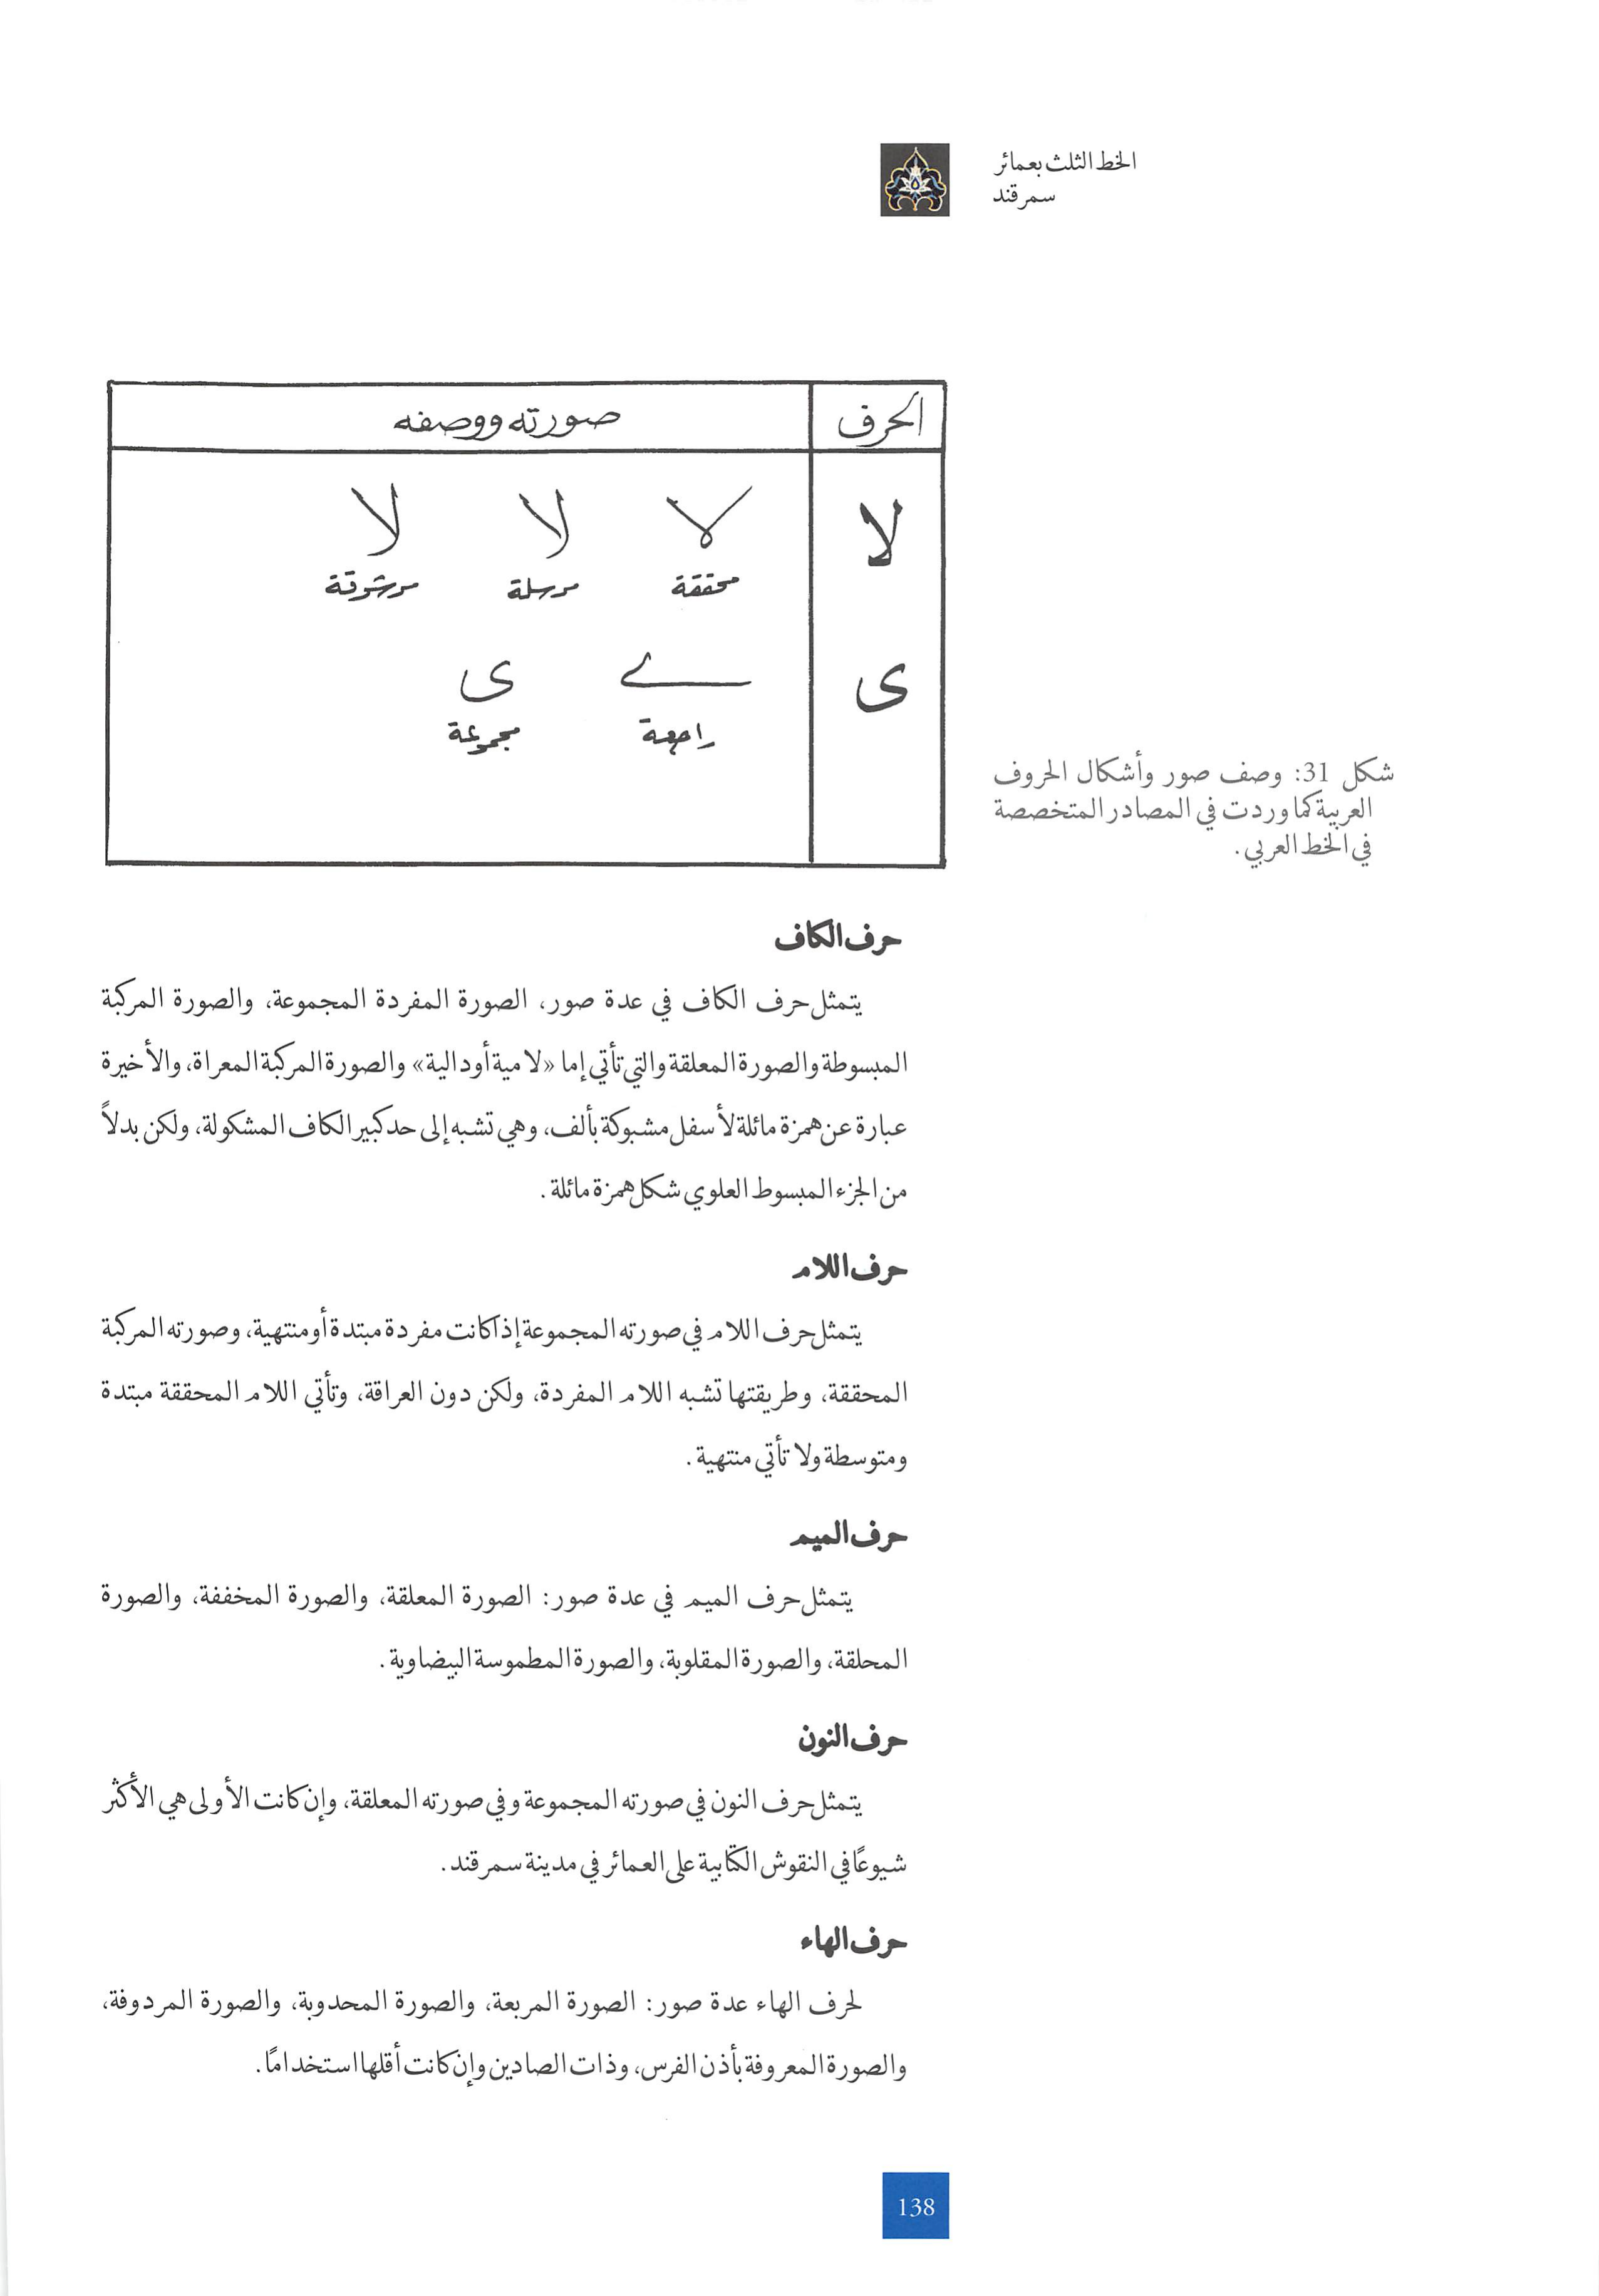 الخط الثلث بعمائر
سمرقند
الحرف صورته ووصفه
لا لا لا لا
محققة مرسلة مرشوقة
ى ے ى
راجعة مجموعة
شكل 31: وصف صور وأشكال الحروف
العربية كما وردت في المصادر المتخصصة
في الخط العربي.
حرف الكاف
يتمثل حرف الكاف في عدة صور، الصورة المفردة المجموعة، والصورة المركبة
المبسوطة والصورة المعلقة والتي تأتي إما «لامية أو دالية» والصورة المركبة المعراة، والأخيرة
عبارة عن همزة مائلة لأسفل مشبوكة بألف، وهي تشبه إلى حد كبير الكاف المشكولة، ولكن بدلاً
من الجزء المبسوط العلوي شكل همزة مائلة.
حرف اللام
يتمثل حرف اللام في صورته المجموعة إذا كانت مفردة مبتدة أو منتهية، وصورته المركبة
المحققة، وطريقتها تشبه اللام المفردة، ولكن دون العراقة، وتأتي اللام المحققة مبتدة
ومتوسطة ولا تأتي منتهية.
حرف الميم
يتمثل حرف الميم في عدة صور: الصورة المعلقة، والصورة المخففة، والصورة
المحلقة، والصورة المقلوبة، والصورة المطموسة البيضاوية.
حرف النون
يتمثل حرف النون في صورته المجموعة وفي صورته المعلقة، وإن كانت الأولى هي الأكثر
شيوعًا في النقوش الكتابية على العمائر في مدينة سمرقند.
حرف الهاء
لحرف الهاء عدة صور: الصورة المربعة، والصورة المحدوبة، والصورة المردوفة،
والصورة المعروفة بأذن الفرس، وذات الصادين وإن كانت أقلها استخدامًا.
138